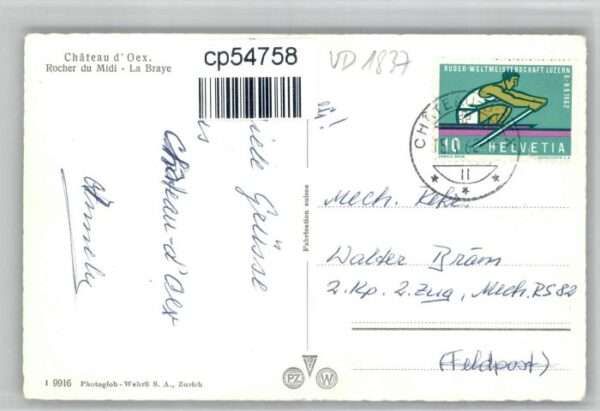 Château d'Oex.
Rocher du Midi - La Braye
cp54758
VD 1837
RUDER-WELTMEISTERSCHAFT LUZERN
1962
10 HELVETIA
CHÂTE
II
Grüsse
Château-d'Oex
Fabrication suisse
Mech. Rekr.
Walter Bräm
2. Kp. 2. Zug, Mech. RS 82
(Feldpost)
PZ W
1 9916 Photoglob-Wehrli S. A., Zurich